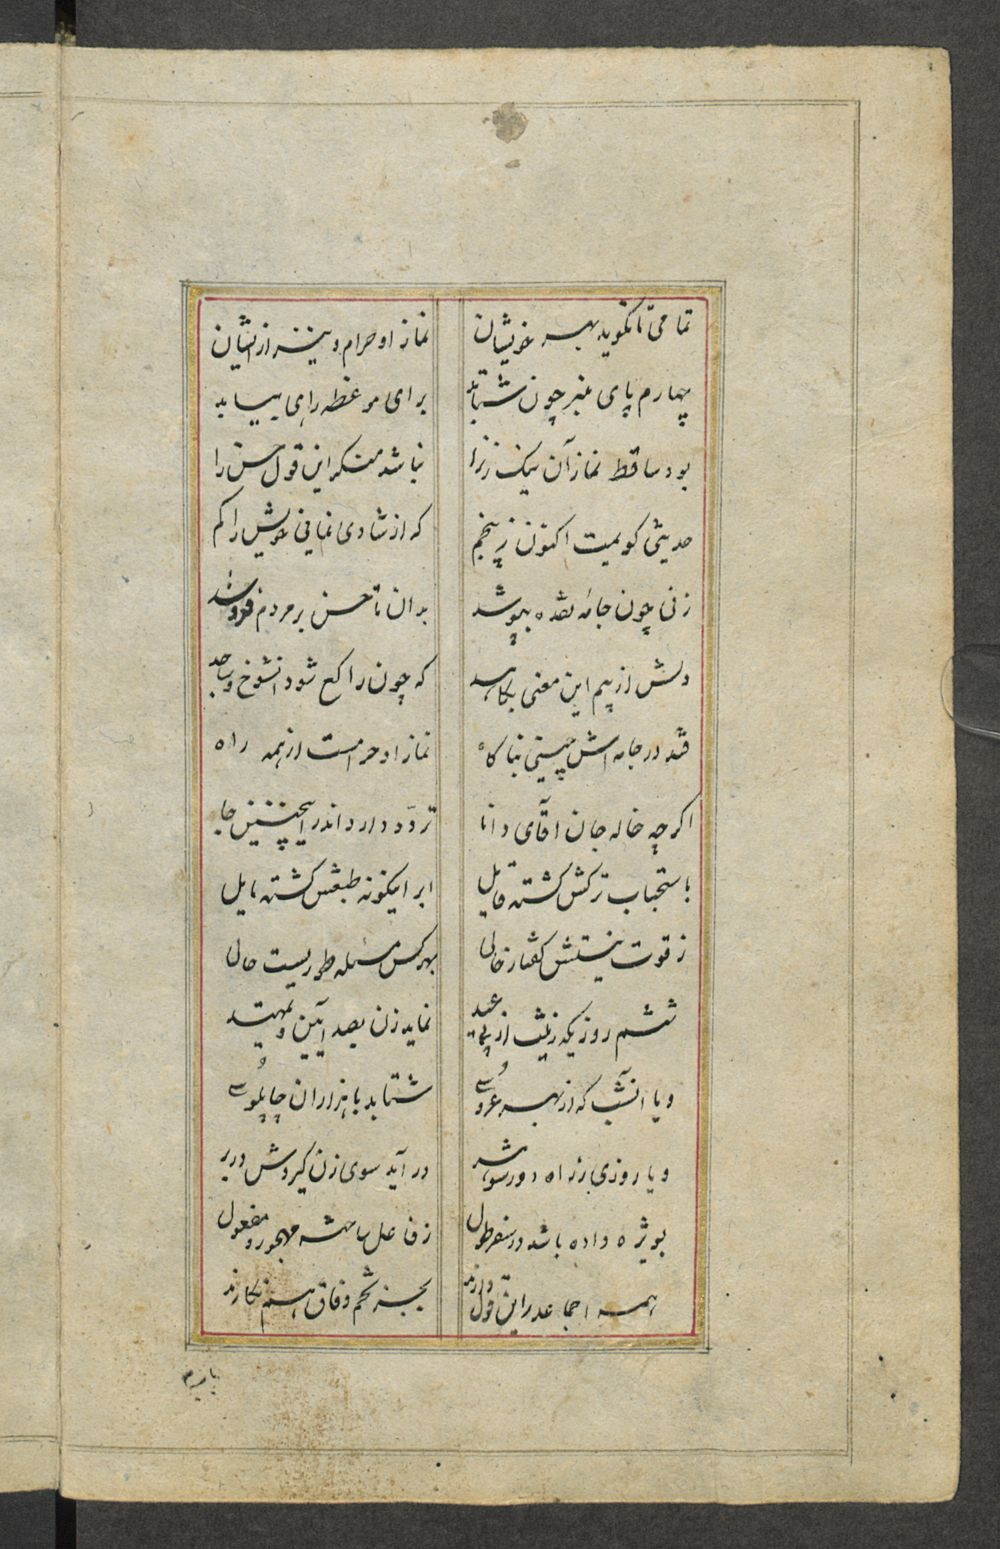 تمامی تا نگوید بهر خویشان نماز او حرام و نیز از ایشان
چهارم پای منبر چون شتابد برای موعظه رای بیابد
بود ساقط نماز آن نیک زن را نباشد منکر این قول حسن را
حدیثی کویمیت اکنون ز پنجم که از شادی نمانی خویش را کم
زنی چون جامهٔ نقده بپوشد بدان تا حسن بر مردم فروشد
دلش از بیم این معنی بکاهد که چون راکع شود انشوخ و ساجد
فتد در جامه اش چینی بناکاه نماز او حرامست از همه راه
اکر چه خاله جان آقای دانا تردّد دارد اندر اینچنین جا
باستحباب ترکش کشته قایل ابر اینکونه طبعش کشته مایل
ز قوت نیستش کفتار خالی بهر کس مسئله طوریست حالی
ششم روزیکه زینت از پی عید نماید زن بصد آیین و تمهید
و یا آنشب که از بهر عروسی شتابد با هزاران چاپلوسی
و یا روزی زراه دور شوهر در آید سوی زن کیردش در بر
بویژه داده باشد در سفر طول ز فاعل ساخته مهجور مفعول
همه اجماع در این قول دارند بجز تخم وفاق هم نکارند